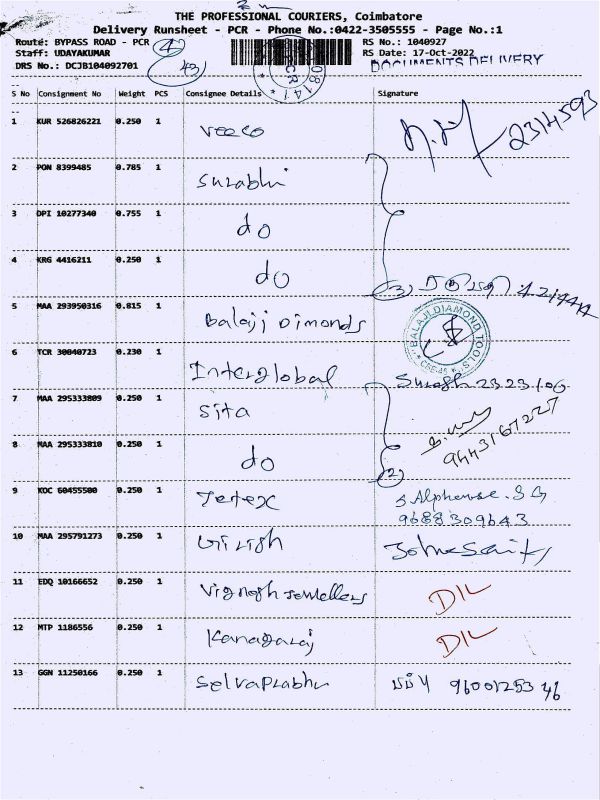 THE PROFESSIONAL COURIERS, Coimbatore
Delivery Runsheet - PCR - Phone No.:0422-3505555 - Page No.:1
Route: BYPASS ROAD - PCR 4 RS No.: 1040927
Staff: UDAYAKUMAR RS Date: 17-Oct-2022
DRS No.: DCJB104092701 DOCUMENTS DELIVERY
S No Consignment No Weight PCS Consignee Details Signature
1 KUR 526826221 0.250 1 veeco 2314593
2 PON 8399485 0.785 1 Surabhi
3 DPI 10277340 0.755 1 do
4 KRG 4416211 0.250 1 do 3
5 MAA 293950316 0.815 1 Balaji Dimonds BALAJI DIAMOND TOOLS
6 TCR 30040723 0.230 1 Interglobal
7 MAA 295333809 0.250 1 Sita
8 MAA 295333810 0.250 1 do 2 9443167227
9 KOC 60455500 0.250 1 Tetex S. Alphonse. S G
9688309643
10 MAA 295791273 0.250 1
11 EDQ 10166652 0.250 1 Vignesh Jewellers DIL
12 MTP 1186556 0.250 1 Kanagaraj DIL
13 GGN 11250166 0.250 1 Selvaprabhu 9600125346